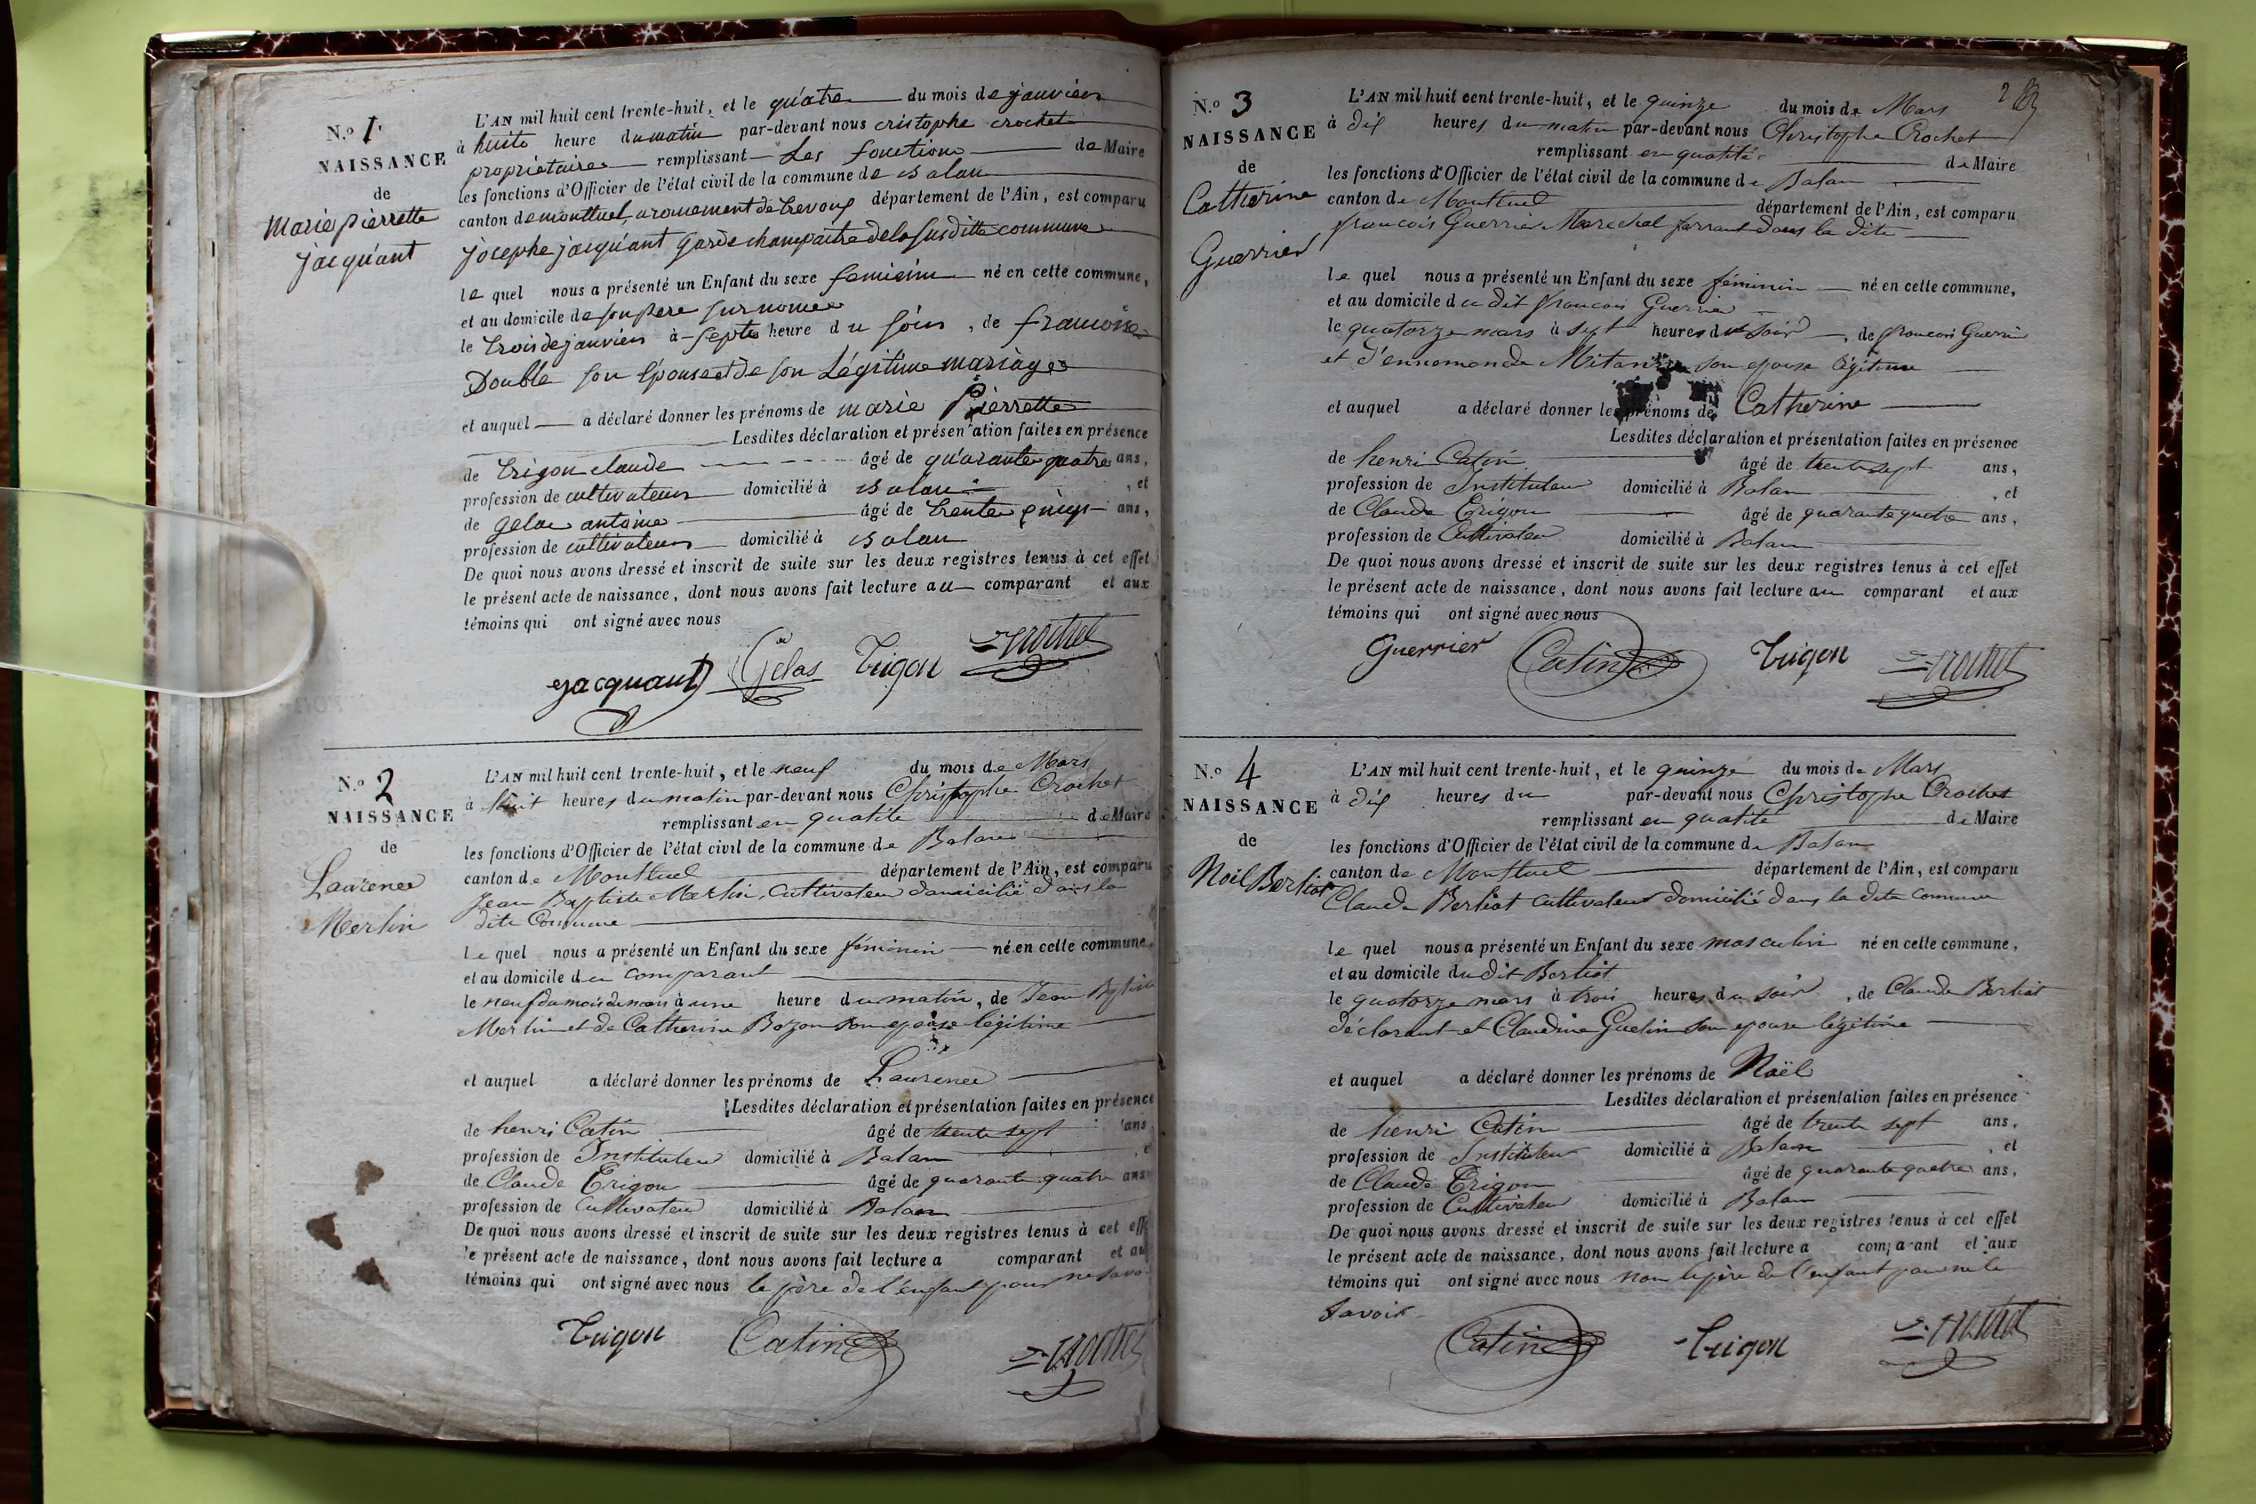 N.o 1
NAISSANCE
de
Marie pierrette
jacquant
L'AN mil huit cent trente-huit, et le quatre du mois de janvier
à huite heure du matin par-devant nous cristophe crochet
propriétaire remplissant Les fonctions de Maire
les fonctions d'Officier de l'état civil de la commune de Balan
canton de montluel, arouement de trevoux département de l'Ain, est comparu
josephe jacquant garde champaitre de la susditte commune
le quel nous a présenté un Enfant du sexe feminin né en cette commune,
et au domicile de son Pere surnomee
le trois de janvier à septe heure du soir, de
Double son Epouse et de son Légitime mariage
et auquel a déclaré donner les prénoms de marie Pierrette
Lesdites déclaration et présentation faites en présence
de trigon claude âgé de quarante quatre ans,
profession de cultivateur domicilié à Balan, et
de gelas antoine âgé de trente cinq ans,
profession de cultivateur domicilié à Balan
De quoi nous avons dressé et inscrit de suite sur les deux registres tenus à cet effet
le présent acte de naissance, dont nous avons fait lecture au comparant et aux
témoins qui ont signé avec nous
jacquant Gelas Trigon Crochet
N.o 2
NAISSANCE
de
Laurence
Merlin
L'AN mil huit cent trente-huit, et le neuf du mois de Mars
à huit heures du matin par-devant nous Christophe Crochet
remplissant en qualité de Maire
les fonctions d'Officier de l'état civil de la commune de Balan
canton de Montluel département de l'Ain, est comparu
Jean Baptiste Merlin, Cultivateur domicilié dans la
dite Commune
Le quel nous a présenté un Enfant du sexe féminin né en cette commune,
et au domicile du comparant
le neuf du mois de mars à une heure du matin, de Jean Bptiste
Merlin et de Catherine Bozon son epouse légitime
et auquel a déclaré donner les prénoms de Laurence
Lesdites déclaration et présentation faites en présence
de henri Catin âgé de trente sept ans
profession de Instituteur domicilié à Balan, et
de Claude Trigon âgé de quarante quatre ans
profession de Cultivateur domicilié à Balan
De quoi nous avons dressé et inscrit de suite sur les deux registres tenus à cet effe
le présent acte de naissance, dont nous avons fait lecture a comparant et au
témoins qui ont signé avec nous le père de l'enfant pour ne savo
Trigon Catin Crochet
2
N.o 3
NAISSANCE
de
Catherine
Guerrier
L'AN mil huit cent trente-huit, et le quinze du mois de Mars
à dix heures du matin par-devant nous Christophe Crochet
remplissant en qualité de Maire
les fonctions d'Officier de l'état civil de la commune de Balan
canton de Montluel département de l'Ain, est comparu
francois Guerrier Marechal ferrant dans la dite
le quel nous a présenté un Enfant du sexe féminin né en cette commune,
et au domicile du dit francois Guerrier
le quatorze mars à sept heures du soir, de francois Guerrier
et d'ennemonde son epouse légitime
et auquel a déclaré donner les prénoms de Catherine
Lesdites déclaration et présentation faites en présence
de henri Catin âgé de trente sept ans,
profession de Instituteur domicilié à Balan, et
de Claude Trigon âgé de quarante quatre ans,
profession de Cultivateur domicilié à Balan
De quoi nous avons dressé et inscrit de suite sur les deux registres tenus à cet effet
le présent acte de naissance, dont nous avons fait lecture au comparant et aux
témoins qui ont signé avec nous
Guerrier Catin Trigon Crochet
N.o 4
NAISSANCE
de
Noël Berliot
L'AN mil huit cent trente-huit, et le quinze du mois de Mars
à dix heures du par-devant nous Christophe Crochet
remplissant en qualité de Maire
les fonctions d'Officier de l'état civil de la commune de Balan
canton de Montluel département de l'Ain, est comparu
Claude Berliot cultivateur domicilié dans la dite commune
le quel nous a présenté un Enfant du sexe masculin né en cette commune,
et au domicile du dit Berliot
le quatorze mars à trois heures du soir, de Claude Berliot
déclarant et Claudine Guelin son epouse légitime
et auquel a déclaré donner les prénoms de Noël
Lesdites déclaration et présentation faites en présence
de henri Catin âgé de trente sept ans,
profession de Instituteur domicilié à Balan, et
de Claude Trigon âgé de quarante quatre ans,
profession de Cultivateur domicilié à Balan
De quoi nous avons dressé et inscrit de suite sur les deux registres tenus à cet effet
le présent acte de naissance, dont nous avons fait lecture a comparant et aux
témoins qui ont signé avec nous non le père de l'enfant pour ne le
savoir
Catin Trigon Crochet